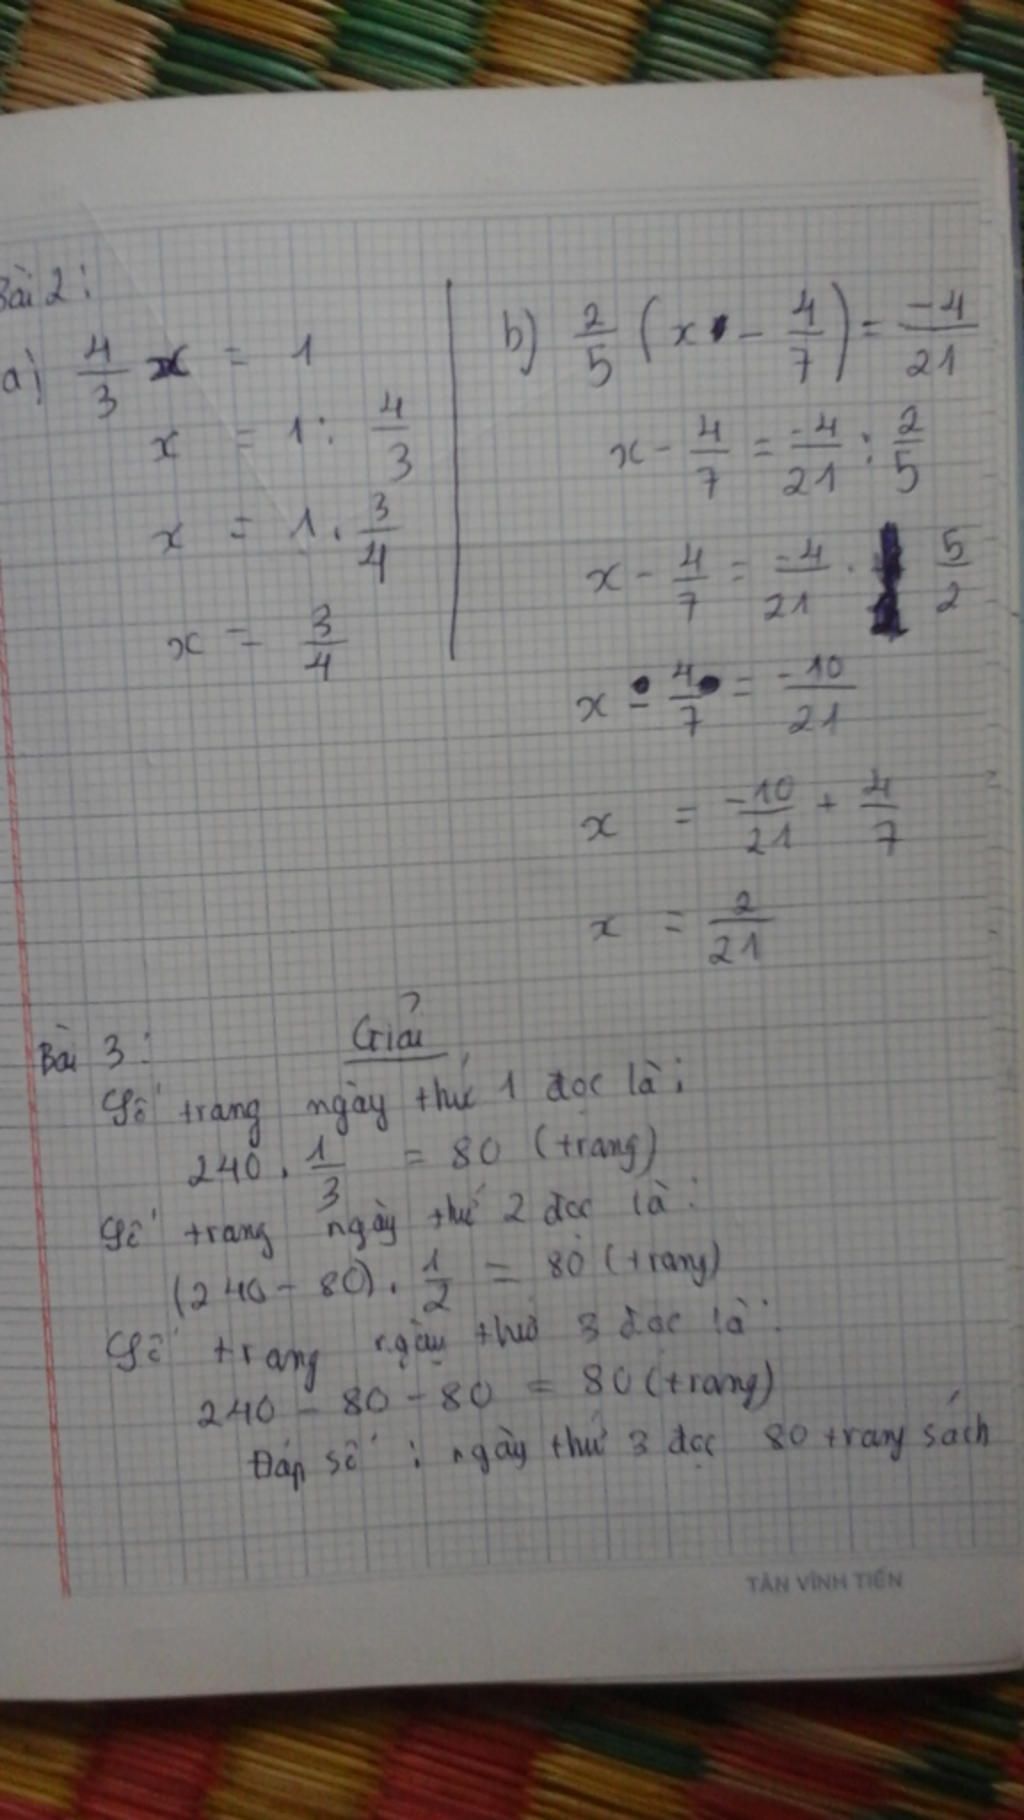 Bài 2:
a) 4/3 x = 1
x = 1 : 4/3
x = 1 . 3/4
x = 3/4
b) 2/5 (x - 4/7) = -4/21
x - 4/7 = -4/21 : 2/5
x - 4/7 = -4/21 . 5/2
x - 4/7 = -10/21
x = -10/21 + 4/7
x = 2/21
Bài 3: Giải
Số trang ngày thứ 1 đọc là:
240 . 1/3 = 80 (trang)
Số trang ngày thứ 2 đọc là:
(240 - 80) . 1/2 = 80 (trang)
Số trang ngày thứ 3 đọc là:
240 - 80 - 80 = 80 (trang)
Đáp số : ngày thứ 3 đọc 80 trang sách
TÂN VĨNH TIẾN